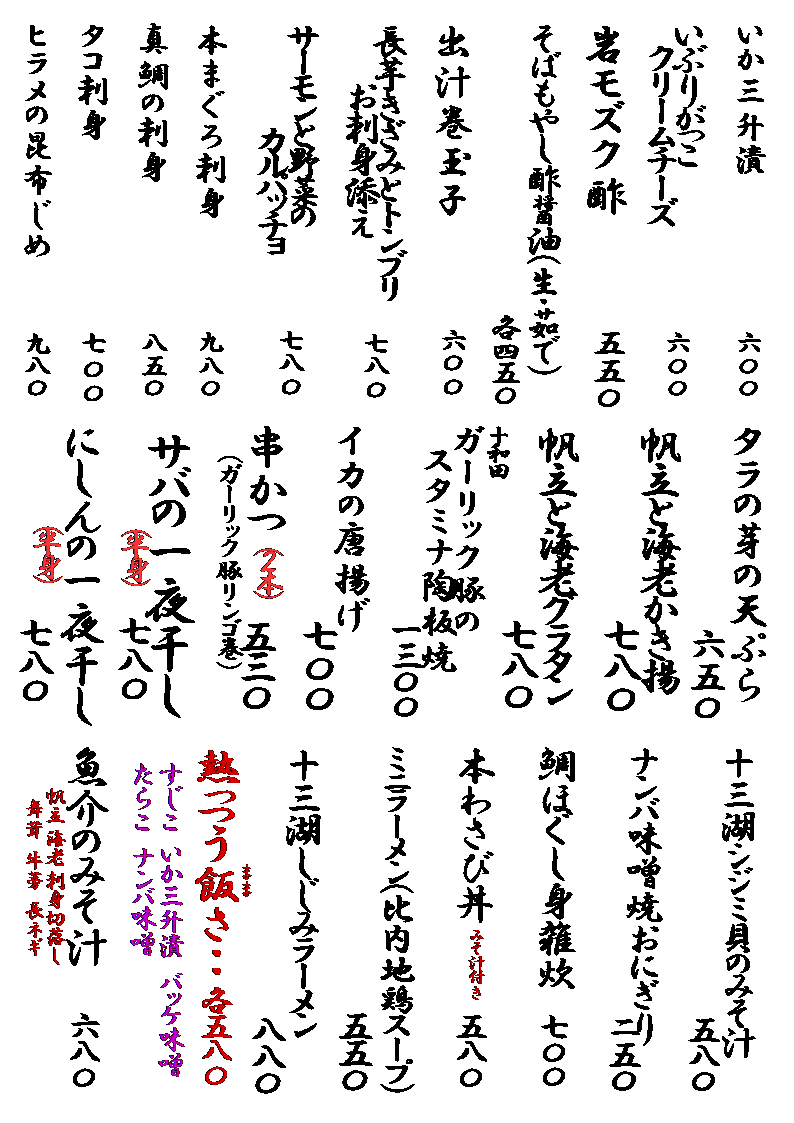 いか三升漬
六〇〇
いぶりがっこ
クリームチーズ
六〇〇
岩モズク酢
五五〇
そばもやし酢醤油(生・茹で)
各四五〇
出汁巻玉子
六〇〇
長芋きざみとトンブリ
お刺身添え
七八〇
サーモンと野菜の
カルパッチョ
七八〇
本まぐろ刺身
九八〇
真鯛の刺身
八五〇
タコ刺身
七〇〇
ヒラメの昆布じめ
九八〇
タラの芽の天ぷら
六五〇
帆立と海老かき揚
七八〇
帆立と海老グラタン
七八〇
十和田
ガーリック豚の
スタミナ陶板焼
一三〇〇
イカの唐揚げ
七〇〇
串かつ(2本)
(ガーリック豚リンゴ巻)
五三〇
サバの一夜干し
(半身)
七八〇
にしんの一夜干し
(半身)
七八〇
十三湖シジミ貝のみそ汁
五八〇
ナンバ味噌焼おにぎり
二五〇
鯛ほぐし身雑炊
七〇〇
本わさび丼
みそ汁付き
五八〇
ミニラーメン(比内地鶏スープ)
五五〇
十三湖しじみラーメン
八八〇
まま
熱つつう飯さ・・各五八〇
すじこ いか三升漬 バッケ味噌
たらこ ナンバ味噌
魚介のみそ汁
帆立 海老 刺身切落し
舞茸 牛蒡 長ネギ
六八〇